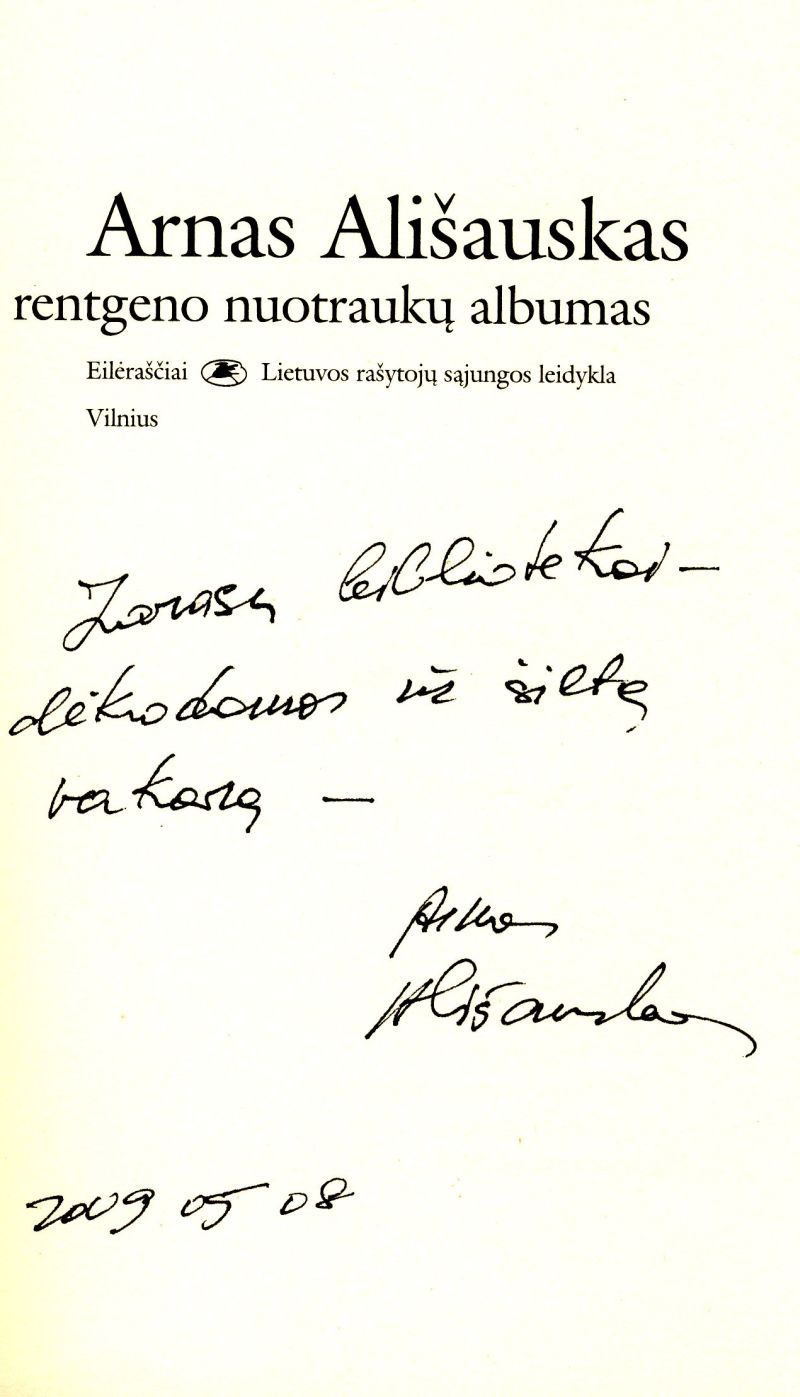 Arnas Ališauskas
rentgeno nuotraukų albumas
Eilėraščiai Lietuvos rašytojų sąjungos leidykla
Vilnius
Zarasų bibliotekai –
dėkodamas už šiltą
vakarą –
Arnas
Ališauskas
2009 05 08